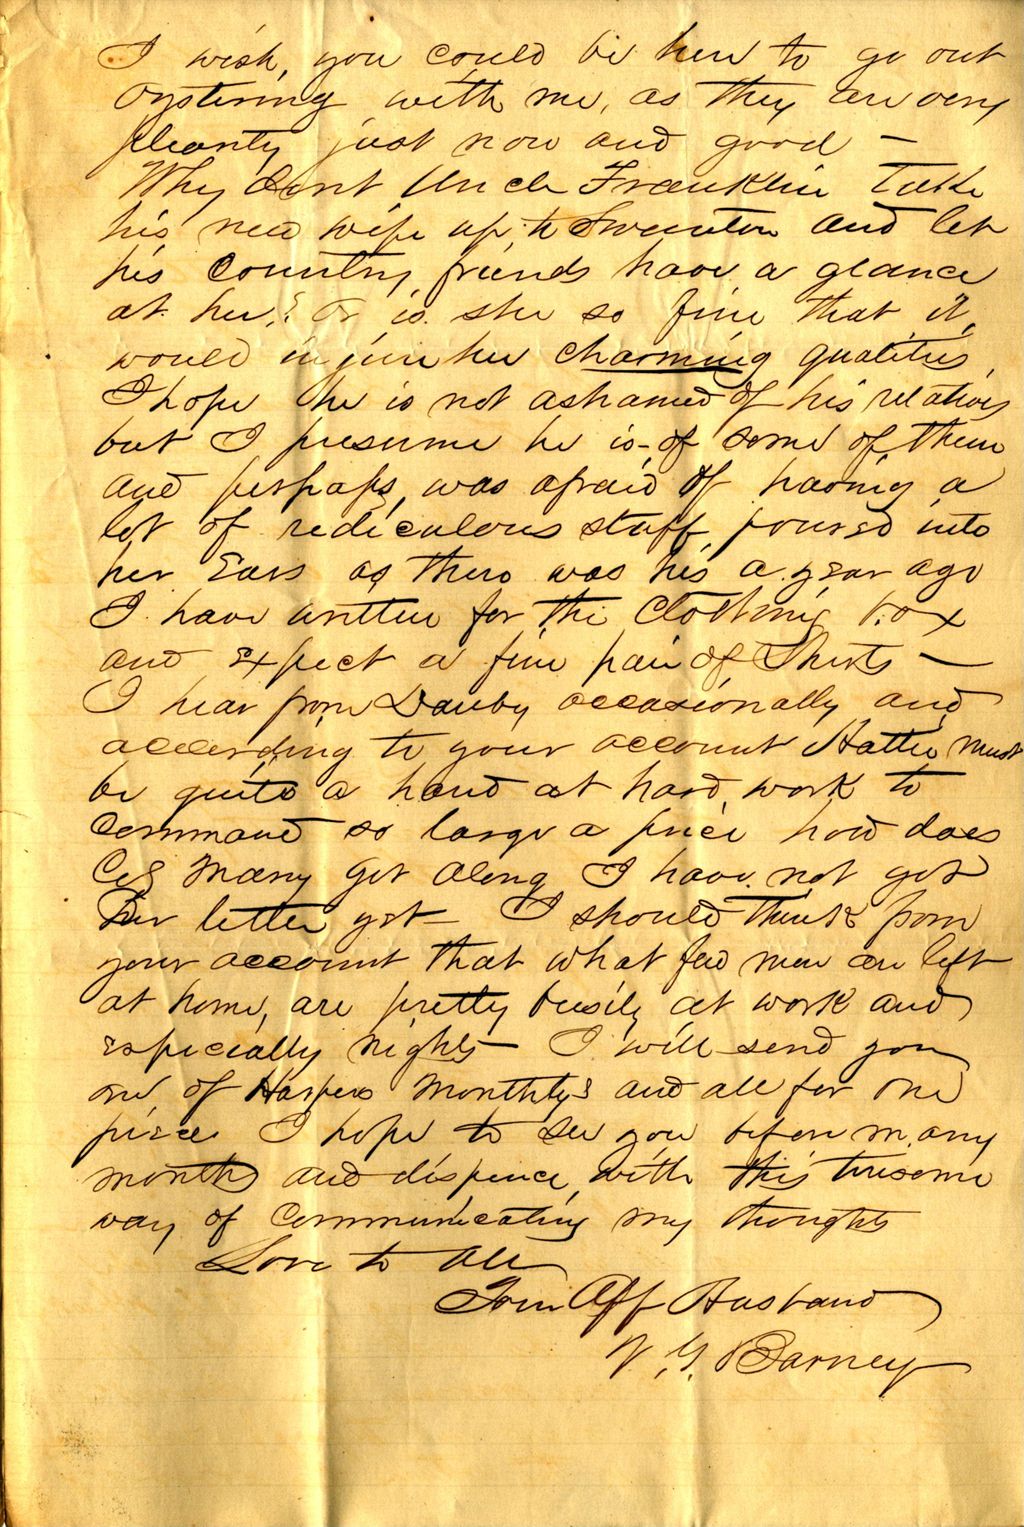 I wish, you could be here to go out
oystering with me, as they are very
pleanty just now and good —
Why dont Uncle Franklin take
his new wife up to Swanton and let
his Country friends have a glance
at her? Or is she so fine that it
would injure her charming qualities
I hope he is not ashamed of his relatives
but I presume he is of some of them
and perhaps was afraid of having a
lot of rediculous stuff poured into
her Ears as there was his a year ago
I have written for the Clothing box
and Expect a fine pair of Shirts —
I hear from Danby occasionally and
according to your account Hattie must
be quite a hand at hard work to
command so large a price how does
Mary get along I have not got
her letter yet I should think from
your account that what few men are left
at home, are pretty busily at work and
especially nights — I will send you
one of Harpers Monthlys and all for one
piece I hope to see you before many
months and dispence with this tiresome
way of Communicating my thoughts
Love to All
Your Aff Husband
V. G. Barney